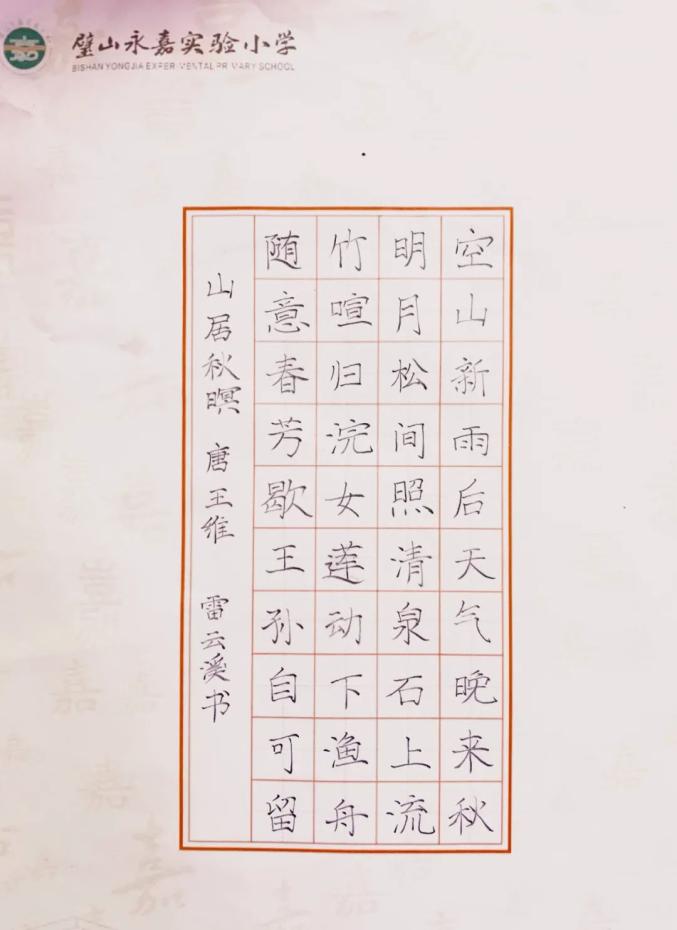 嘉
璧山永嘉实验小学
BISHAN YONGJIA EXPERIMENTAL PRIMARY SCHOOL
空山新雨后天气晚来秋
明月松间照清泉石上流
竹喧归浣女莲动下渔舟
随意春芳歇王孙自可留
山居秋暝 唐 王维 雷云溪书